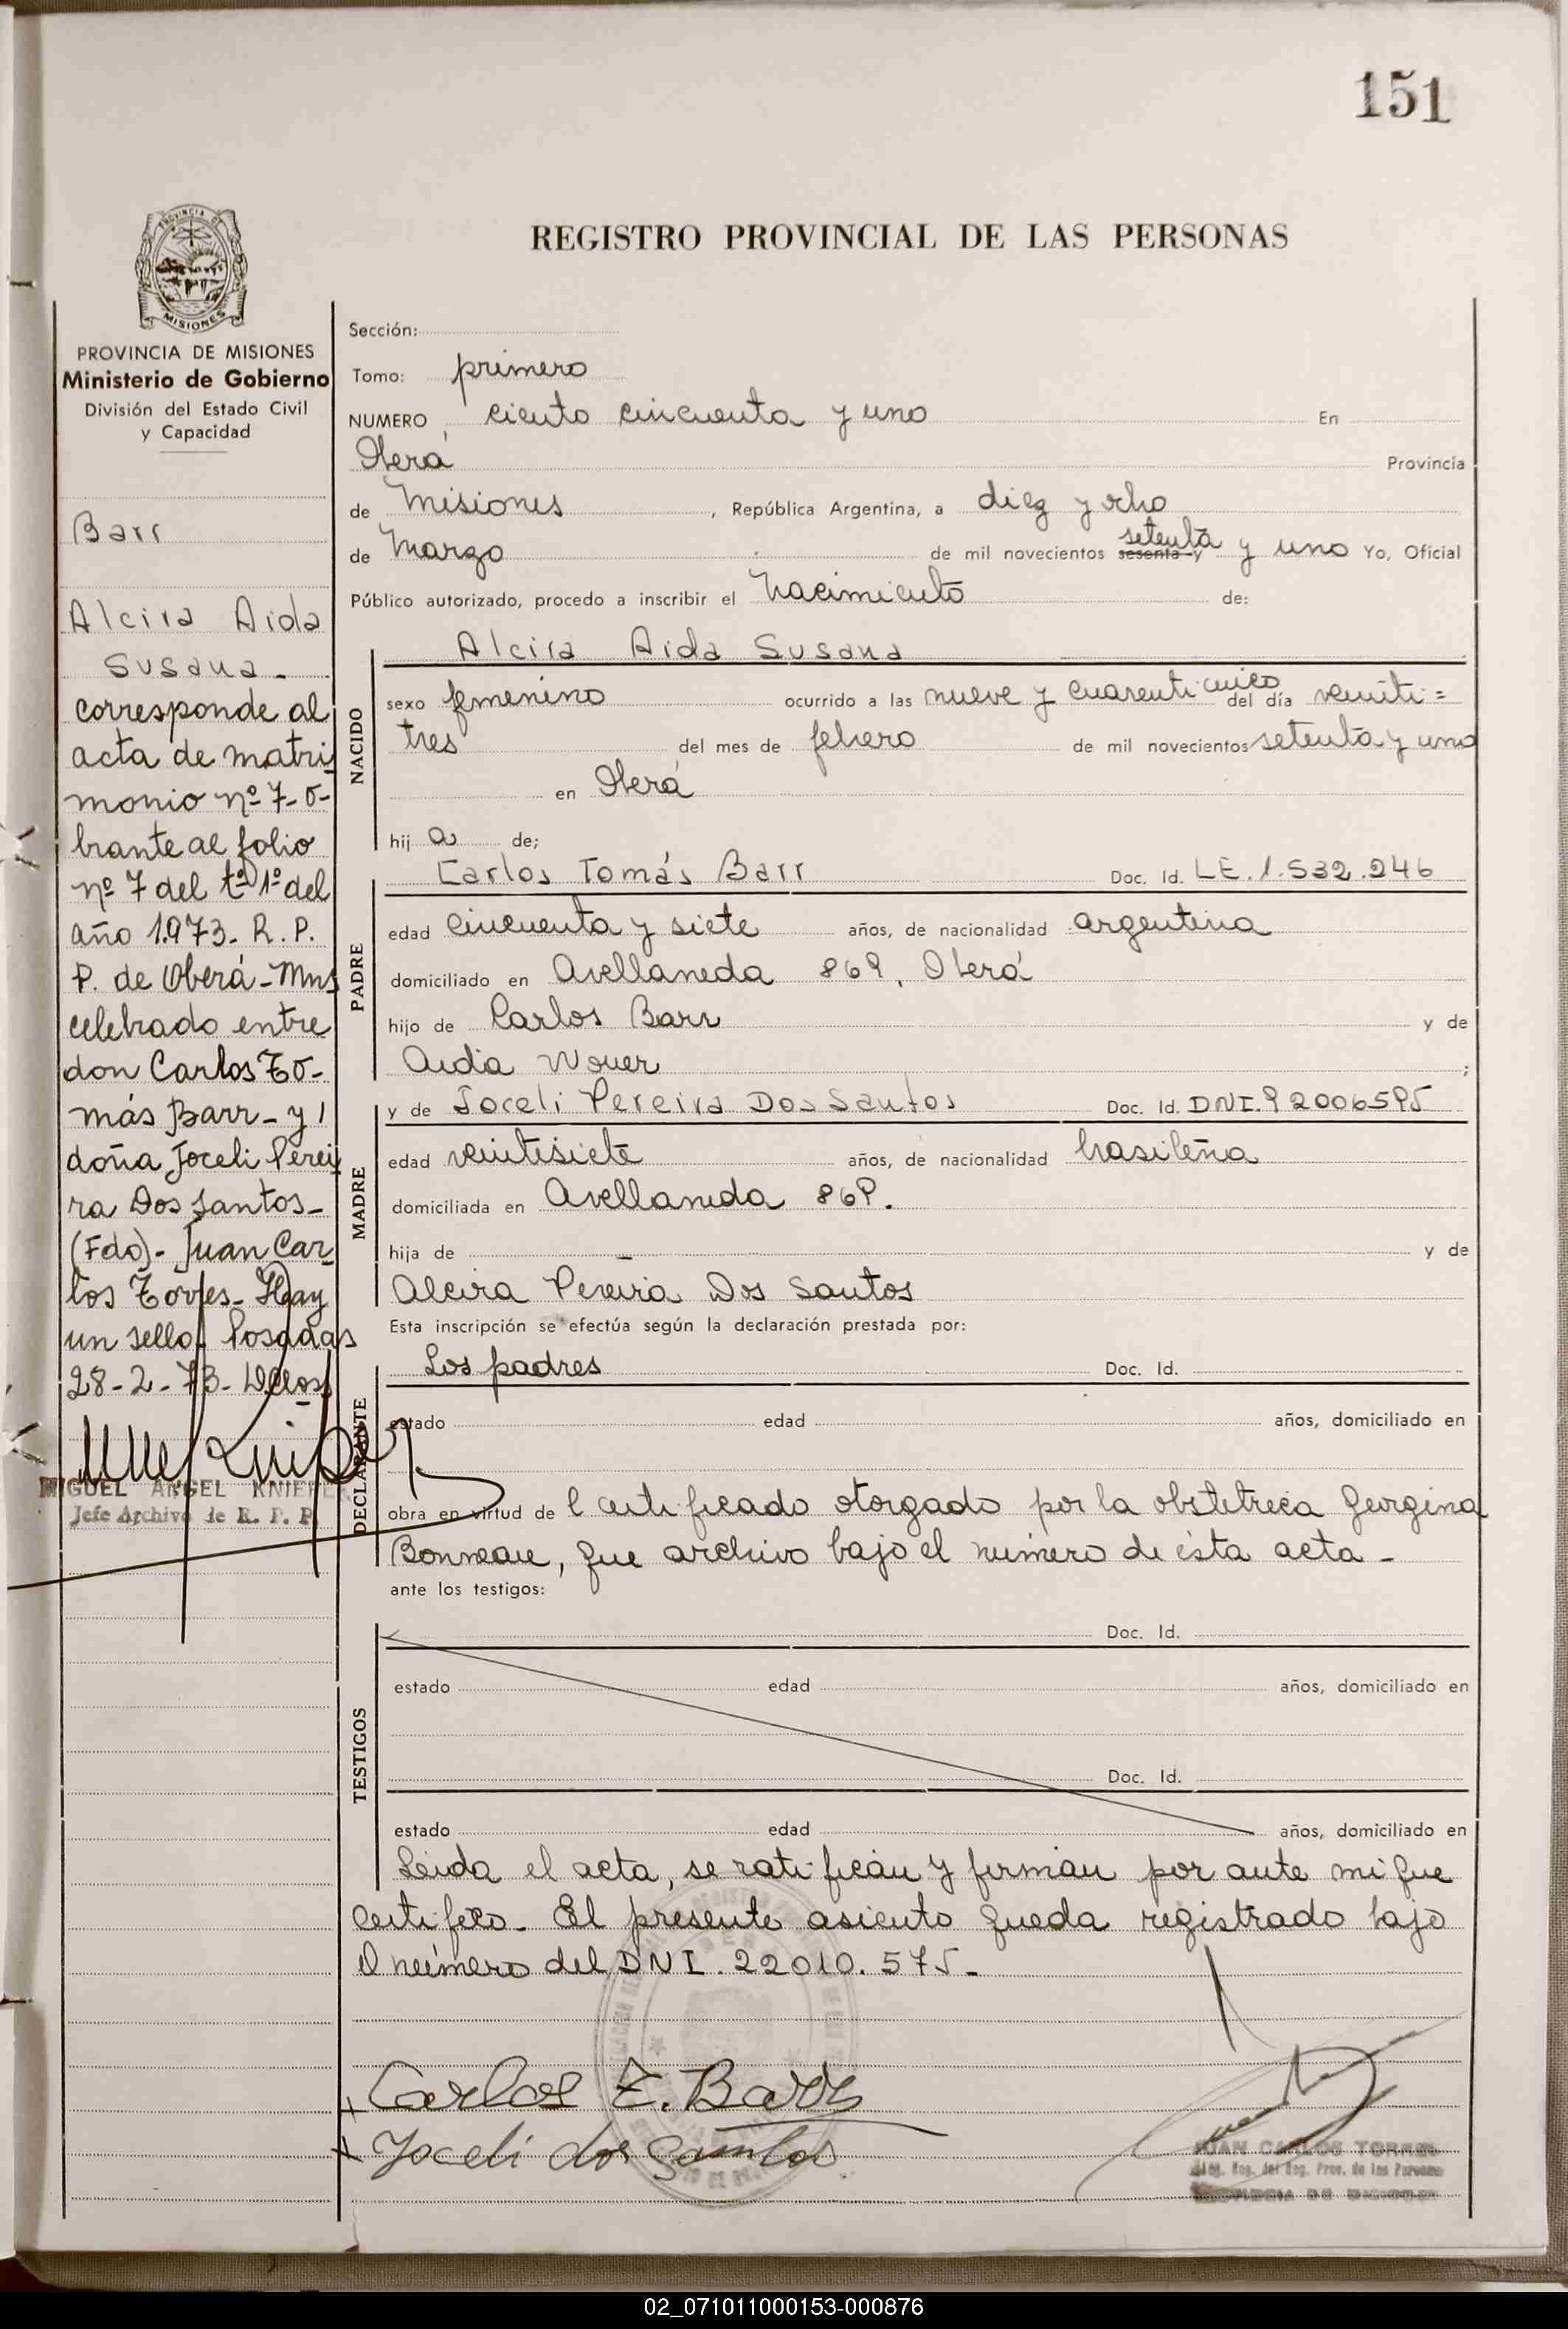 151
REGISTRO PROVINCIAL DE LAS PERSONAS
PROVINCIA DE
MISIONES
PROVINCIA DE MISIONES
Ministerio de Gobierno
División del Estado Civil
y Capacidad
Barr
Alcira Aida
Susana.
corresponde al
acta de matri
monio nº 7-o-
brante al folio
nº 7 del tº 1º del
año 1.973- R. P.
P. de Oberá - Mns
celebrado entre
don Carlos To-
más Barr - y /
doña Joceli Perei
ra Dos Santos-
(Fdo)- Juan Car
los Torres- Hay
un sello. Posadas
28-2-73-
MIGUEL ANGEL KNIEPER
Jefe Archivo de R. P. P.
Sección:
Tomo: primero
NUMERO ciento cincuenta y uno En
Oberá Provincia
de Misiones, República Argentina, a diez y ocho
de Marzo de mil novecientos sesenta y setenta y uno Yo, Oficial
Público autorizado, procedo a inscribir el Nacimiento de:
Alcira Aida Susana
NACIDO
sexo femenino ocurrido a las nueve y cuarenticinco del día veinti=
tres del mes de febrero de mil novecientos setenta y uno
en Oberá
hij a de;
Carlos Tomás Barr Doc. Id. LE. 1.532.246
PADRE
edad cincuenta y siete años, de nacionalidad argentina
domiciliado en Avellaneda 869, Oberá
hijo de Carlos Barr y de
Aida ;
y de Joceli Pereira Dos Santos Doc. Id. DNI. 92006595
MADRE
edad veintisiete años, de nacionalidad brasileña
domiciliada en Avellaneda 869.
hija de — y de
Alcira Pereira Dos Santos
Esta inscripción se efectúa según la declaración prestada por:
Los padres Doc. Id.
DECLARANTE
estado edad años, domiciliado en
obra en virtud de l certificado otorgado por la obstetrica Georgina
Bonneau, que archivo bajo el número de ésta acta -
ante los testigos:
Doc. Id.
TESTIGOS
estado edad años, domiciliado en
Doc. Id.
estado edad años, domiciliado en
Leida el acta, se ratifican y firman por ante mi que
certifico- El presente asiento queda registrado bajo
el número del DNI. 22010.575-
Carlos T. Barr
Joceli dos Santos
JUAN CARLOS TORRES
del Reg. Prov. de las Personas
PROVINCIA DE MISIONES
02_071011000153-000876